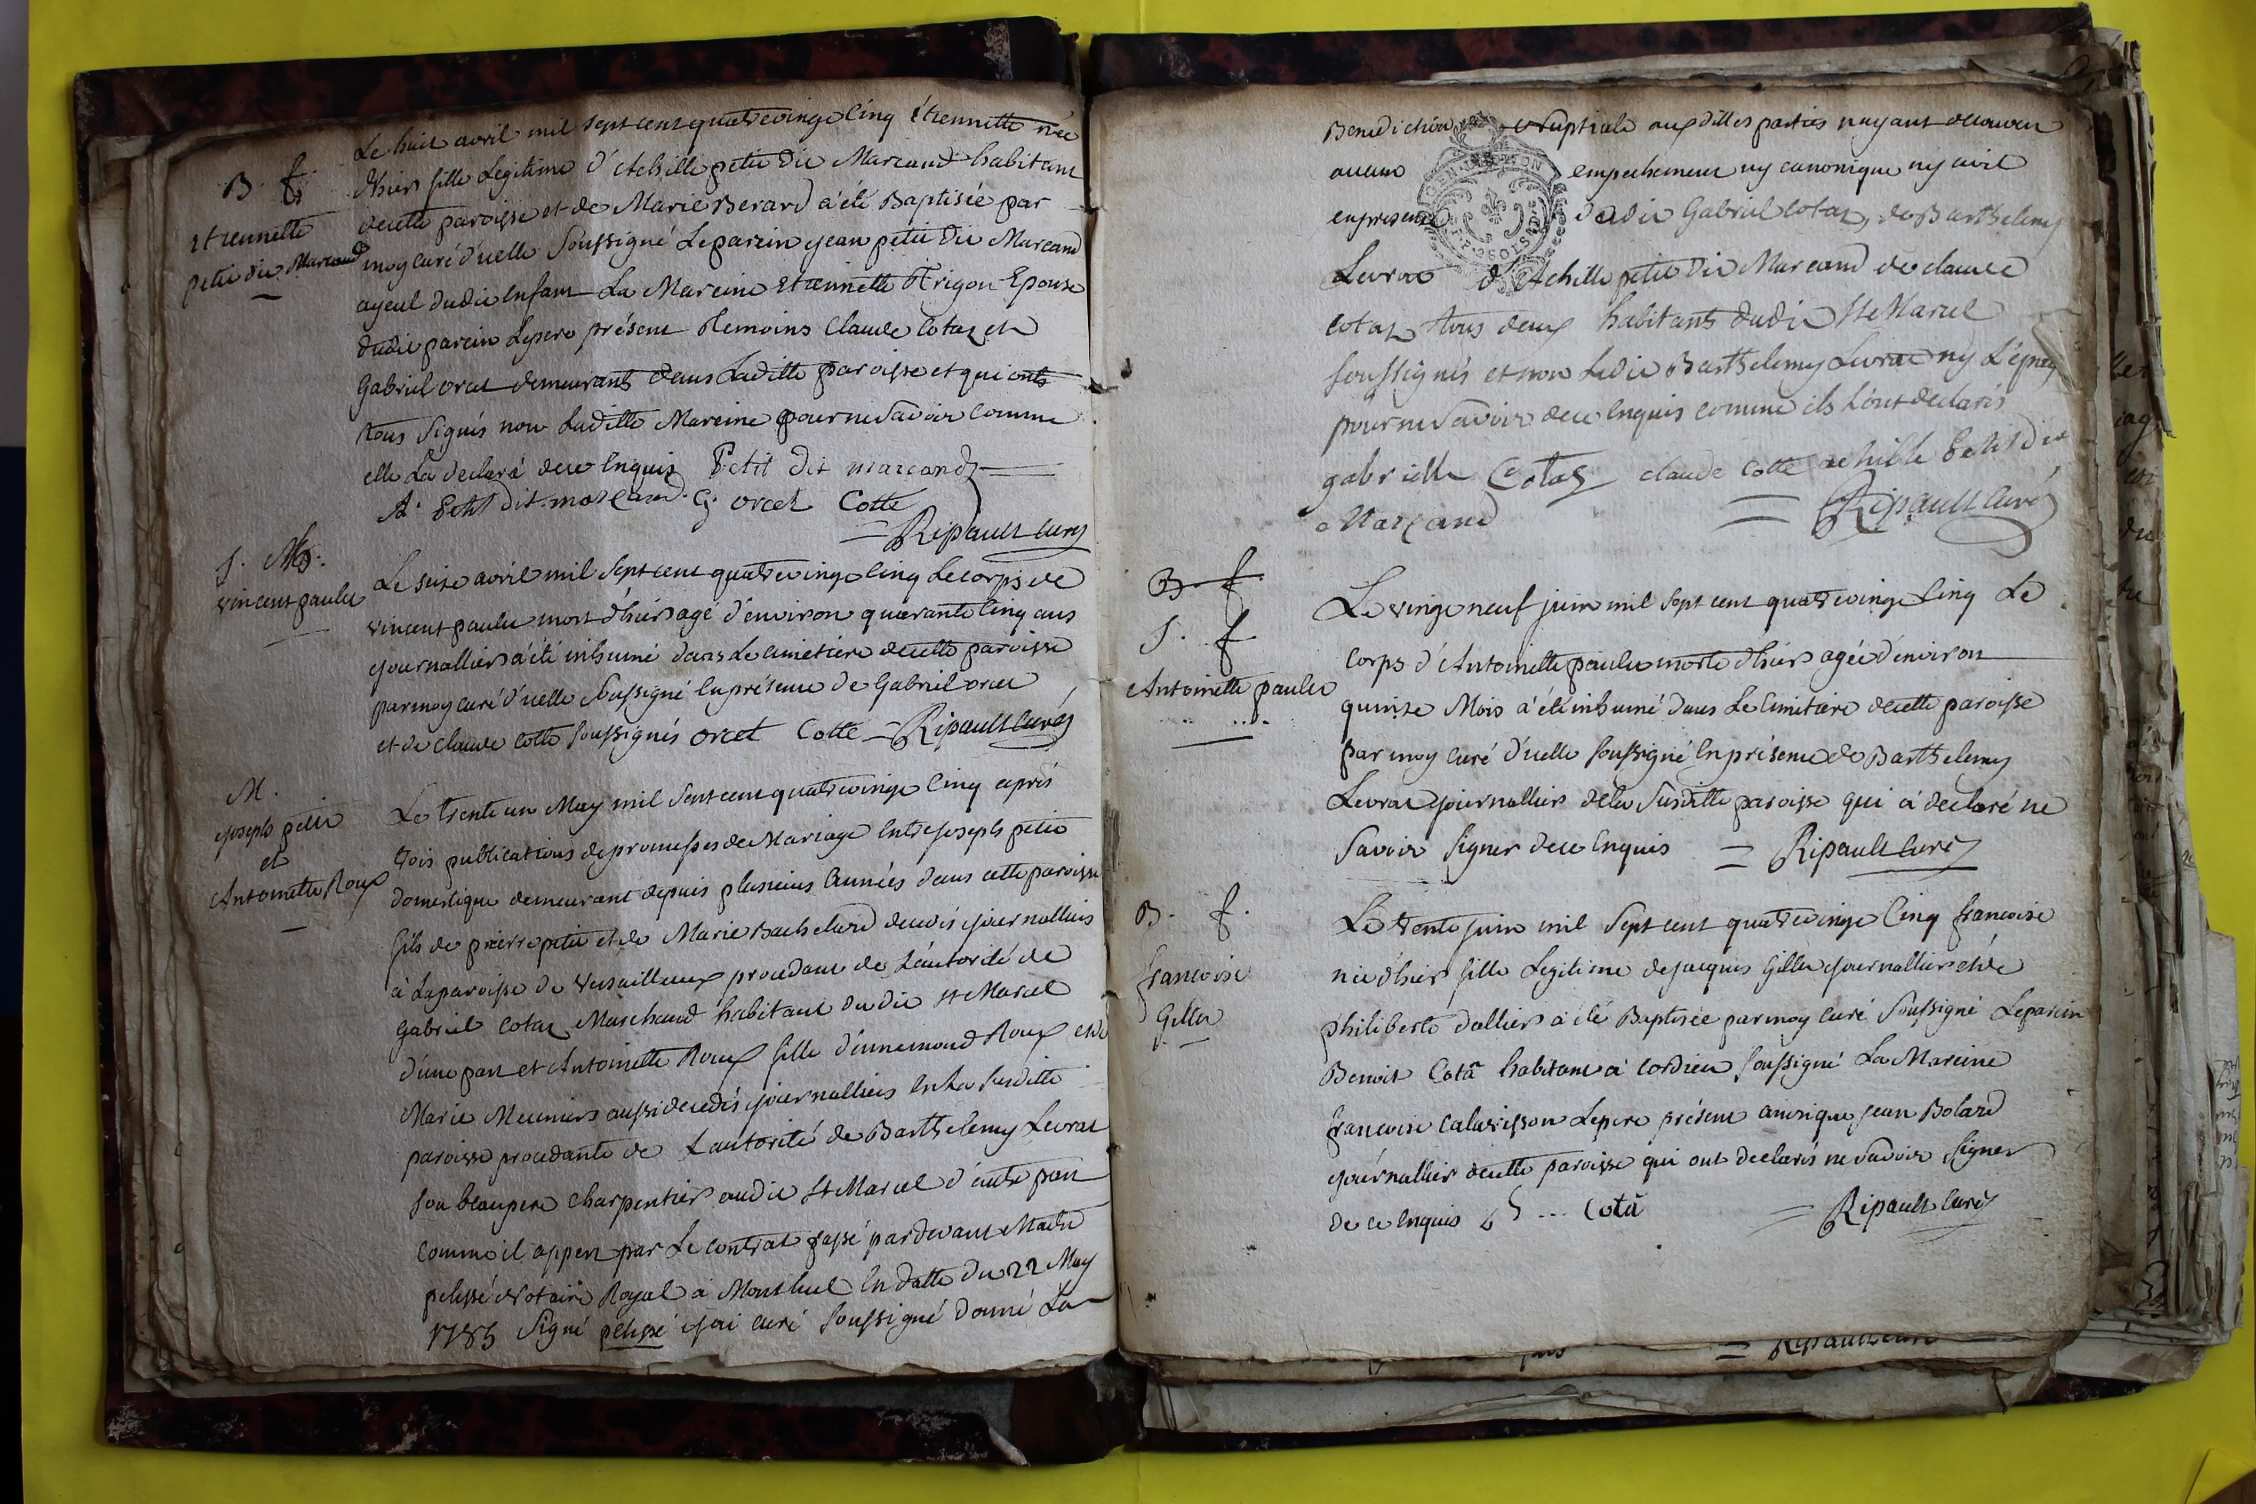 B. f.
Etiennette
petit dit Marcand
Le huit avril mil sept cent quatrevingt cinq étiennette née
d'hier fille Legitime d'Achille petit dit Marcand habitant
decette paroisse et de Marie Berard a été Baptisée par
moy curé d'icelle soussigné Le parein jean petit dit Marcand
ayeul dudit enfant La Mareine Etiennette Trigon Epouse
dudit parein Lepere présent temoins Claude Cotaz et
Gabriel orcet demeurants dans Laditte paroisse et qui onts
tous signés non Laditte Mareine pour ne savoir comme
elle La declaré dece enquis Petit dit marcand
A. Petit dit marcand. G. orcet Cotte
= Ripault Curé
S. M.
vincent paulet
Le seize avril mil sept cent quatrevingt cinq Le corps de
vincent paulet mort d'hier agé d'environ quarante cinq ans
journallier a été inhumé dans Le cimetiere decette paroisse
par moy curé d'icelle soussigné en présence de Gabriel orcet
et de claude cotte soussignés orcet Cotte = Ripault Curé
M.
joseph petit
et
Antoinette Roux
Le trente un May mil sept cent quatrevingt cinq après
trois publications de promesses de Mariage entre joseph petit
domestique demeurant depuis plusieurs années dans cette paroisse
fils de pierre petit et de Marie Bachelard decedés journalliers
à La paroisse de versailleux procedant de L'autorité de
Gabriel cotaz Marchand habitant dudit st Marcel
d'une part et Antoinette Roux fille d'ennemond Roux et de
Marie Meunier aussi decedés journalliers en La susditte
paroisse procedante de L'autorité de Barthelemy Levrat
son beaupere charpentier audit st Marcel d'autre part
comme il appert par Le contrat passé pardevant Maitre
pelissé Notaire Royal à Montluel en datte du 22 May
1785 signé pelissé j'ai curé soussigné donné La
Benediction Nuptiale auxdittes parties n'ayant decouvert
aucun empechement ny canonique ny civil
en presence dudit Gabriel cotaz, de Barthelemy
Levrat d'Achille petit dit Marcand de claude
cotaz tous deux habitants dudit st Marcel
soussignés et non Ledit Barthelemy Levrat ny L'epoux
pour ne savoir dece enquis comme ils L'ont declarés
gabrielle Cotaz claude Cotte achille Petit dit
Marcand = Ripault Curé
B. f.
S. f.
Antoinette paulet
Le vingt neuf juin mil sept cent quatrevingt cinq Le
corps d'Antoinette paulet morte d'hier agée d'environ
quinze Mois a été inhumé dans Le Cimitiere decette paroisse
par moy curé d'icelle soussigné en présence de Barthelemy
Levrat journallier dela susditte paroisse qui a declaré ne
savoir signer dece enquis = Ripault Curé
B. f.
francoise
Gillet
Le trente juin mil sept cent quatrevingt cinq francoise
née d'hier fille Legitime de jacques Gillet journallier et de
philiberte dallier a été Baptisée par moy curé soussigné Le parein
Benoit Cotä habitant à cordieu soussigné La Mareine
francoise calavisson Lepere présent ainsique jean Bolard
journallier decette paroisse qui ont declarés ne savoir signer
de ce enquis ... Cotä = Ripault Curé
= Ripault curé